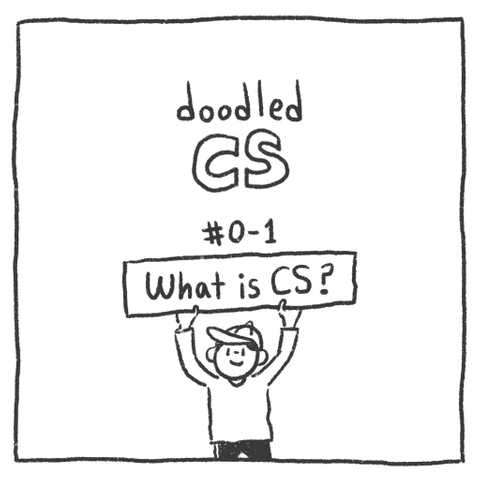 doodled
CS
#0-1
What is CS?